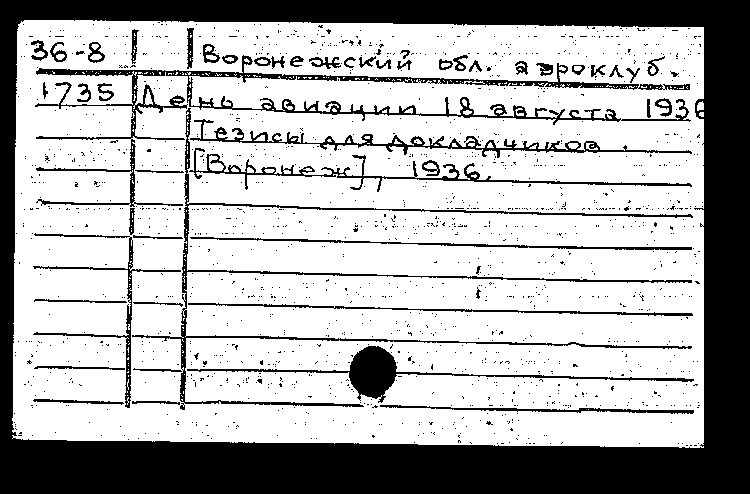 36-8 Воронежский обл. аэроклуб.
1735 День авиации 18 августа 1936
Тезисы для докладчиков.
[Воронеж], 1936.